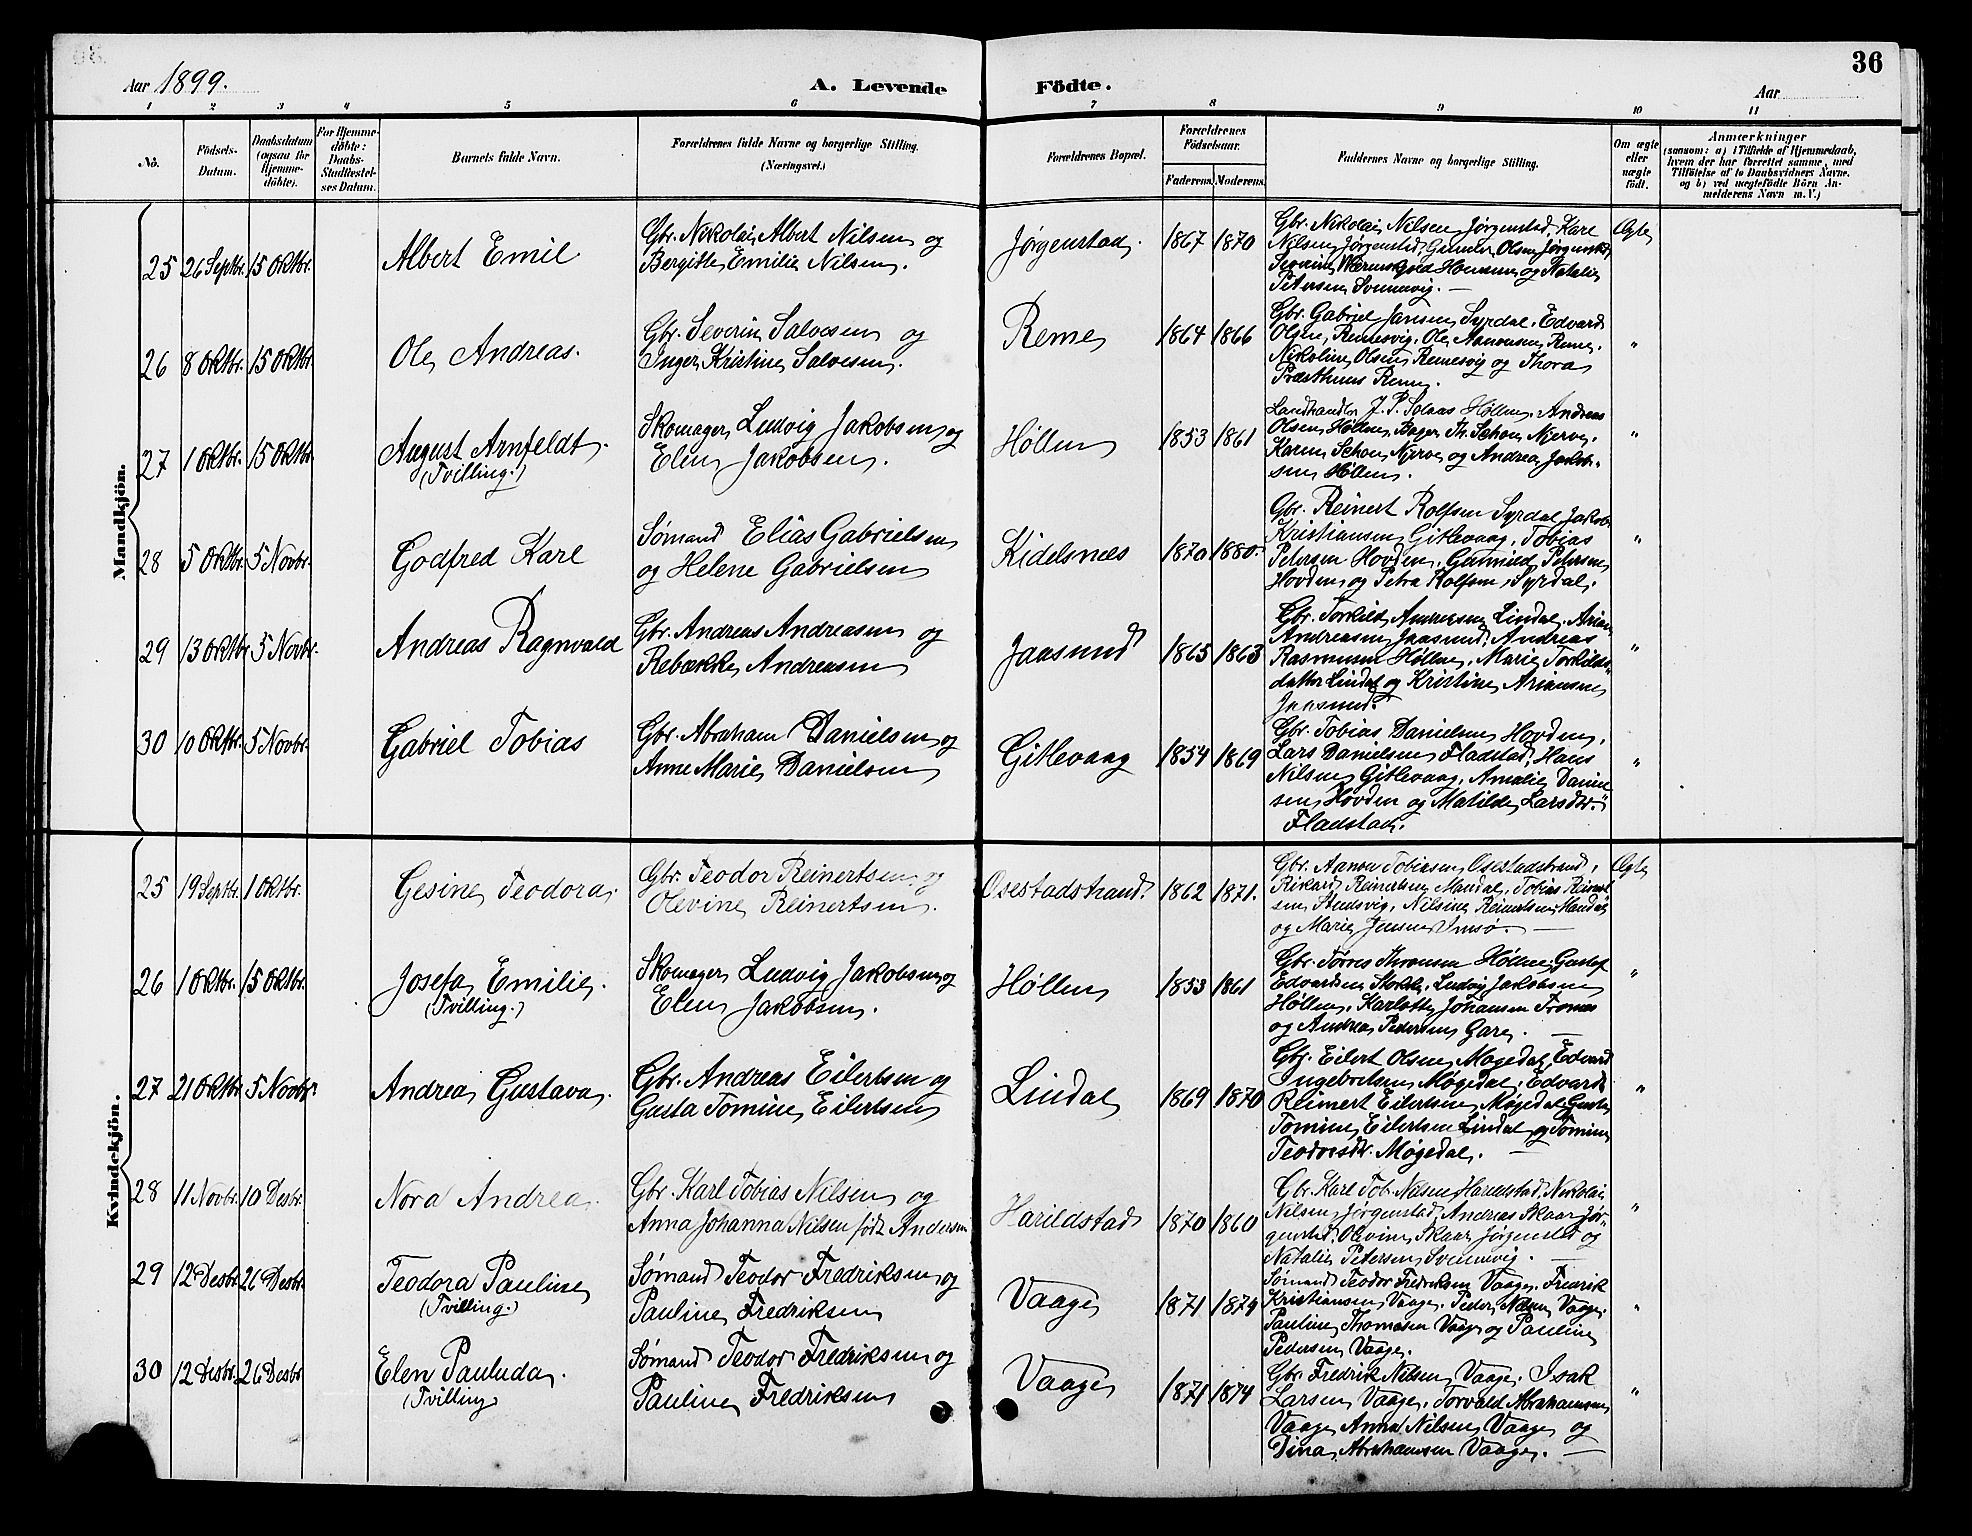 36
Aar 1899.
A. Levende
Födte.
Aar
1 2 3 4 5 6 7 8 9 10 11
No.
Födsels-
Datum.
Daabsdatum
(ogsaa for
Hjemme-
döbte).
For Hjemme-
döbte:
Daabs-
Stadfæstel-
ses Datum.
Barnets fulde Navn.
Forældrenes fulde Navne og borgerlige Stilling.
(Næringsvei.)
Forældrenes Bopæl.
Forældrenes
Födselsaar.
Faderens. Moderens.
Faddernes Navne og borgerlige Stilling.
Om ægte
eller
uægte
født.
Anmærkninger
(saasom: a) i Tilfælde af Hjemmedaab,
hvem der har forrettet samme, med
Tilföielse af to Daabsvidners Navne,
og b) ved uægtefödte Börn An-
melderens Navn m. V.)
Mandkjön.
25 26 Septbr. 15 Oktbr.
Albert Emil
Gbr. Nikolai Albert Nilsen og
Bergitte Emilie Nilsen.
Jørgenstad.
1867 1870
Gbr. Nikolai Nilsen Jørgenstad, Karl
Nilsen Jørgenstad, Gunder Olsen Jørgenstad,
Severine og Natalie
Petersen Svennevig. —
Ægte
26 8 Oktbr. 15 Oktbr.
Ole Andreas.
Gbr. Severin Salvesen og
Inger Kristine Salvesen.
Reme
1864 1866
Gbr. Gabriel Jansen Syrdal, Edvard
Olsen, Remesvig, Ole Aanensen Reme,
Nikoline Olsen Remesvig og Thora
Præsthuus Reme.
"
27 1 Oktbr. 15 Oktbr.
August Arnfeldt.
(Tvilling.)
Skomager Ludvig Jakobsen og
Elen Jakobsen.
Höllen
1853 1861
Landhandler J. P. Höllen, Andreas
Olsen, Höllen, Bager Th. Schou, Njerve,
Karen Schou, Njerve og Andrea Jakob-
sen Höllen.
"
28 5 Oktbr. 5 Novbr.
Godfred Karl
Sømand Elias Gabrielsen
og Helene Gabrielsen
Kidelsnæs
1870 1880.
Gbr. Reinert Rolfsen Syrdal, Jakob
Kristiansen, Gitlevaag, Tobias
Petersen Hovden, Gunnild Petersen,
Hovden og Petra Rolfsen, Syrdal.
"
29 13 Oktbr 5 Novbr.
Andreas Ragnvald
Gbr. Andreas Andreasen og
Rebække Andreasen
Jaasund
1865 1863
Gbr. Torkild Lindal, Arian
Andreasen Jaasund, Andreas
Rasmusen Höllen, Marie Torkilds-
datter Lindal og Kristine Ariansen,
Jaasund.
"
30 10 Oktbr. 5 Novbr.
Gabriel Tobias
Gbr. Abraham Danielsen og
Anne Marie Danielsen
Gitlevaag
1854 1869
Gbr. Tobias Danielsen Hovden,
Lars Danielsen, Fladstad, Hans
Nilsen Gitlevaag, Amalie Daniel
sen, Hovden og Matilde Larsdtr.
Fladstad.
"
Kvindekjön.
25 19 Septbr. 1 Oktbr.
Gesine Teodora.
Gbr. Teodor Reinertsen og
Olevine Reinertsen.
Osestadstrand.
1862 1871.
Gbr. Aanen Tobiasen, Osestadstrand,
Rikard Reinertsen Mandal, Tobias Reinert
sen Stusvig, Nilsine Reinertsen, Mandal
og Marie Jensen Imsø. —
Ægte
26 1 Oktbr. 15 Oktbr.
Josefa Emilie.
(Tvilling.)
Skomager Ludvig Jakobsen og
Elen Jakobsen.
Höllen
1853 1861
Gbr. Torres Höllen, Gustaf
Edvardsen Ludvig Jakobsen
Höllen, Karlotte Johansen Tromøs
og Andrea Pedersen, Gare. —
"
27 21 Oktbr 5 Novbr.
Andrea Gustava.
Gbr. Andreas Eilertsen og
Gusta Tomine Eilertsen
Lindal
1869 1870
Gbr. Eilert Olsen, Møgedal, Edvard
Ingebretsen Møgedal, Edvard
Reinert Eilertsen, Møgedal, Gusta
Tomine Eilertsen Lindal og Tomine
Teodorsdtr. Møgedal. —
"
28 11 Novbr. 10 Desbr.
Nora Andrea.
Gbr. Karl Tobias Nilsen og
Anna Johanna Nilsen født Andersen
Harildstad
1870 1860
Gbr. Karl Tob. Nilsen, Harildstad, Nikolai
Nilsen, Jørgenstad, Andreas Skaar, Jør-
genstad, Olevine Skaar, Jørgenstad og
Natalie Petersen, Svennevig. —
"
29 12 Desbr. 26 Desbr.
Teodora Pauline
(Tvilling.)
Sømand Teodor Fredriksen og
Pauline Fredriksen
Vaage
1871 1874
Sømand Teodor Fredriksen Vaage, Fredrik
Kristiansen, Vaage, Peder Nilsen, Vaage,
Pauline Thomasen Vaage og Pauline
Pedersen Vaage.
"
30 12 Desbr. 26 Desbr
Elen Pauluda.
(Tvilling)
Sømand Teodor Fredriksen og
Pauline Fredriksen
Vaage
1871 1874
Gbr. Fredrik Nilsen, Vaage, Isak
Larsen, Vaage, Torvald Abrahamsen,
Vaage, Anna Nilsen, Vaage og
Tina Abrahamsen Vaage. —
"